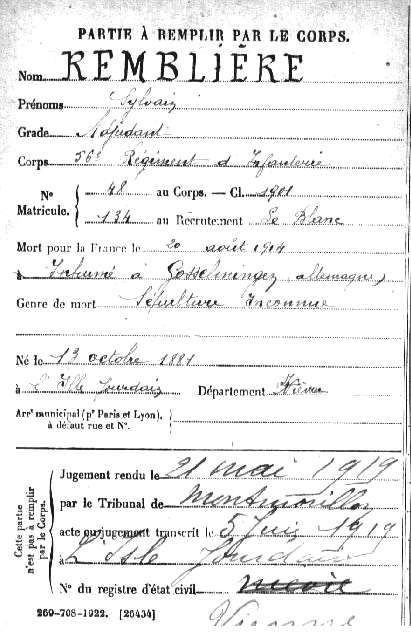 PARTIE À REMPLIR PAR LE CORPS.
Nom REMBLIÈRE
Prénoms Sylvain
Grade Adjudant
Corps 56e Régiment d'Infanterie
N° Matricule. 48 au Corps. — Cl. 1901
134 au Recrutement Le Blanc
Mort pour la France le 20 août 1914
à Inhumé à Gosselmingen (allemagne)
Genre de mort Sépulture Inconnue
Né le 13 octobre 1881
à l'Isle Jourdain Département Vienne
Arr^t municipal (p^r Paris et Lyon),
à défaut rue et N°.
Cette partie n'est pas à remplir par le Corps.
Jugement rendu le 21 mai 1919
par le Tribunal de Montmorillon
acte ou jugement transcrit le 5 Juin 1919
à L'Isle Jourdain
N° du registre d'état civil
Vienne
269-708-1922. [26434]